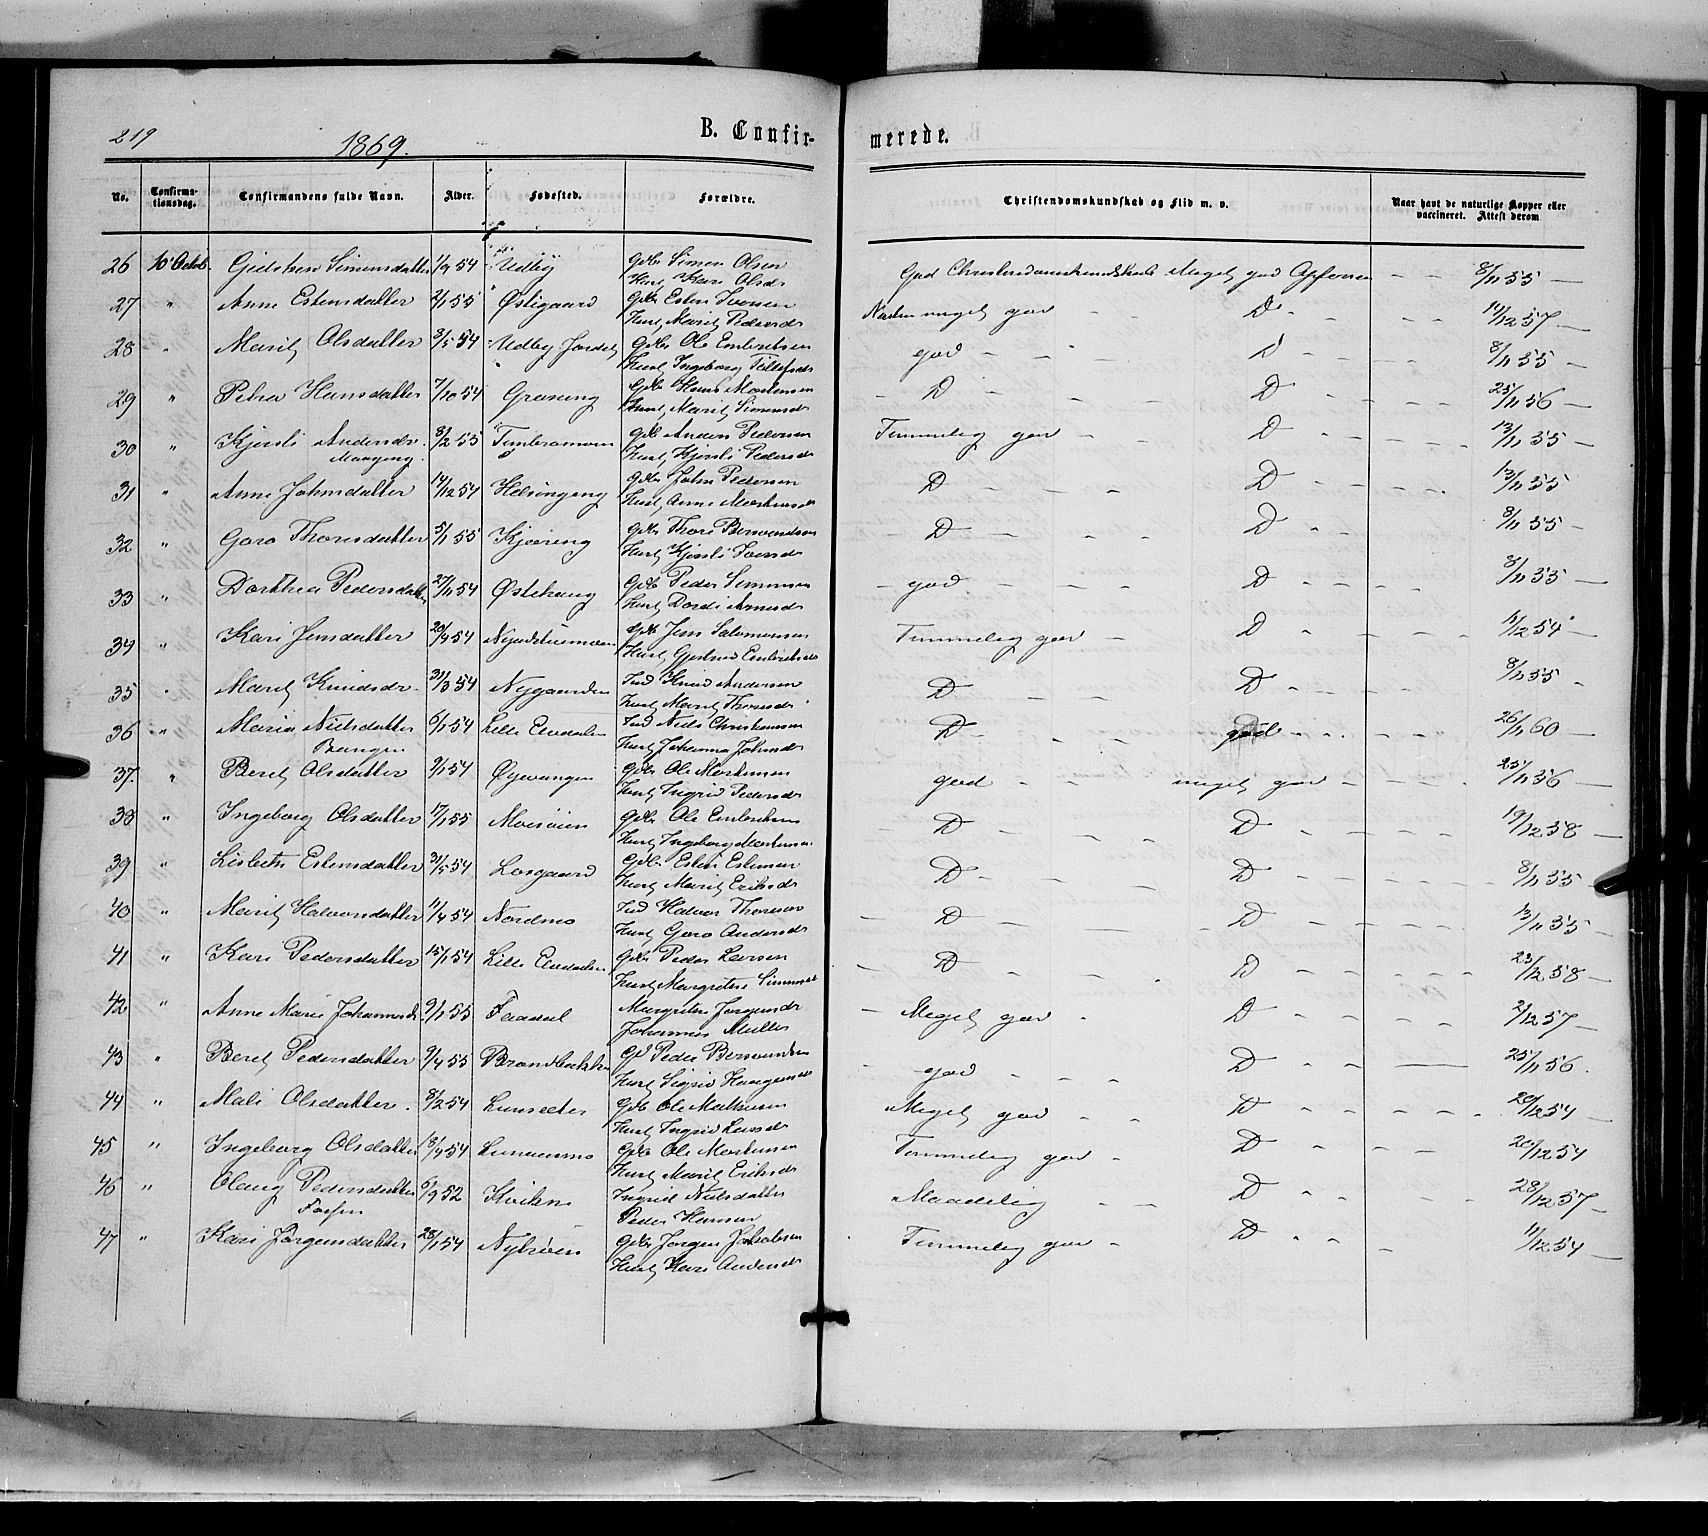 219
1869.
B. Confir-
merede.
No.
Confirma-
tionsdag.
Confirmandens fulde Navn.
Alder.
Fødested.
Forældre.
Christendomskundskab og Flid m. v.
Naar havt de naturlige Kopper eller
vaccineret. Attest derom
26 10 Octob. Simensdatter 1/9 54 Udby Gdbr Simen Olsen
Hust Kari Olsdr God Christendomskundskab Meget god Opførsel - - 8/11 55 -
27 " Anne Estensdatter 2/1 55 Østigaard Gdbr Esten Iversen
Hust Marit Pedersdr Næsten meget god - - D - - - - 11/12 57 -
28 " Marit Olsdatter 8/5 54 Udby Jordet Gdbr Ole Embretsen
Hust Ingeborg god - - - D - - - 8/11 55 -
29 " Petra Hansdatter 7/10 54 Graseng Gdbr Hans Mortensen
Hust Marit Simensdr - D - - - D - - - 25/11 56 -
30 " Kjersti Andersdr. 8/2 55 Gdbr Anders Pedersen
Hust Kjersti Pedersdr Temmelig god - - D - - - 13/11 55 -
31 " Anne Johnsdatter 14/12 54 Helsingeng Gdbr John Pedersen
Hust Anne D - - - D - - - 13/11 55
32 " Goro Thoresdatter 5/1 55 Kjæreng Gdbr Thore Bersvendsen
Hust Kjersti - D - - - D - - - 8/11 55 -
33 " Dorthea Pedersdatter 27/11 54 Østehaug Gdbr Peder Simensen
Hust Dordi - god - - - D - - - 8/11 55 -
34 " Kari Jensdatter 20/9 54 Gdbr Jens Salomonsen
Hust Embretsdr Temmelig god - D - - - 11/12 54
35 " Marit Knudsdr. 31/3 54 Nygaarden Ind Knud Andersen
Hust Marit Thoresdr D - - - D - - - 8/11 55 -
36 " Maria Nielsdatter 6/1 54 Lille Elvedalen Ind Niels Christiansen
Bangen Hust Johanna Johnsdr D - - - god - - - 26/11 60 -
37 " Beret Olsdatter 9/1 54 Øyevangen Gdbr Ole Mortensen
Hust Ingrid Pedersdr god - - meget god - - - 25/11 56
38 " Ingeborg Olsdatter 17/1 55 Moesøien Gdbr Ole Embretsen
Hust Ingeborg - D - - - D - - - 19/12 58 -
39 " Lisbeth Estensdatter 31/5 54 Losgaard Gdbr Esten Estensen
Hust Marit Eriksdr D - - - D - - - 8/11 55
40 " Marit Halvorsdatter 11/4 54 Nordmo Ind Halvor Thoresen
Hust Goro Andersdr - D - - - D - - - 13/11 55 -
41 " Kari Pedersdatter 15/1 54 Lille Elvedalen Gdbr Peder Larsen
Hust Margrethe Simensdr - D - - - D - - - 23/12 58 -
42 " Anne Marie Johannesdr 9/1 55 Faaset Margrethe Jørgensdr
Johannes - Meget god - D - - - 21/12 57 -
43 " Beret Pedersdatter 9/4 55 Brandbakken Gdbr Peder Bersvendsen
Hust Sigrid - god - - - D - - - 25/11 56.
44 " Mali Olsdatter. 8/2 54 Lunsæter Gdbr Ole Mathisen
Hust Ingrid Larsdr Meget god - - D - - - 20/12 54 -
45 " Ingeborg Olsdatter 18/4 54 Gdbr Ole Mortensen
Hust Marit Eriksdr Temmelig god - D - - - 20/12 54
46 " Olaug Pedersdatter 6/9 52 Kvikne Ingrid Nielsdatter
Fossen Peder Hansen Maadelig - D - - - 28/12 57 -
47 " Kari Jørgensdatter 28/1 54 Nytrøen Gdbr Jørgen Jakobsen
Hust Kari Andersdr Temmelig god - D - - - 11/12 54 -